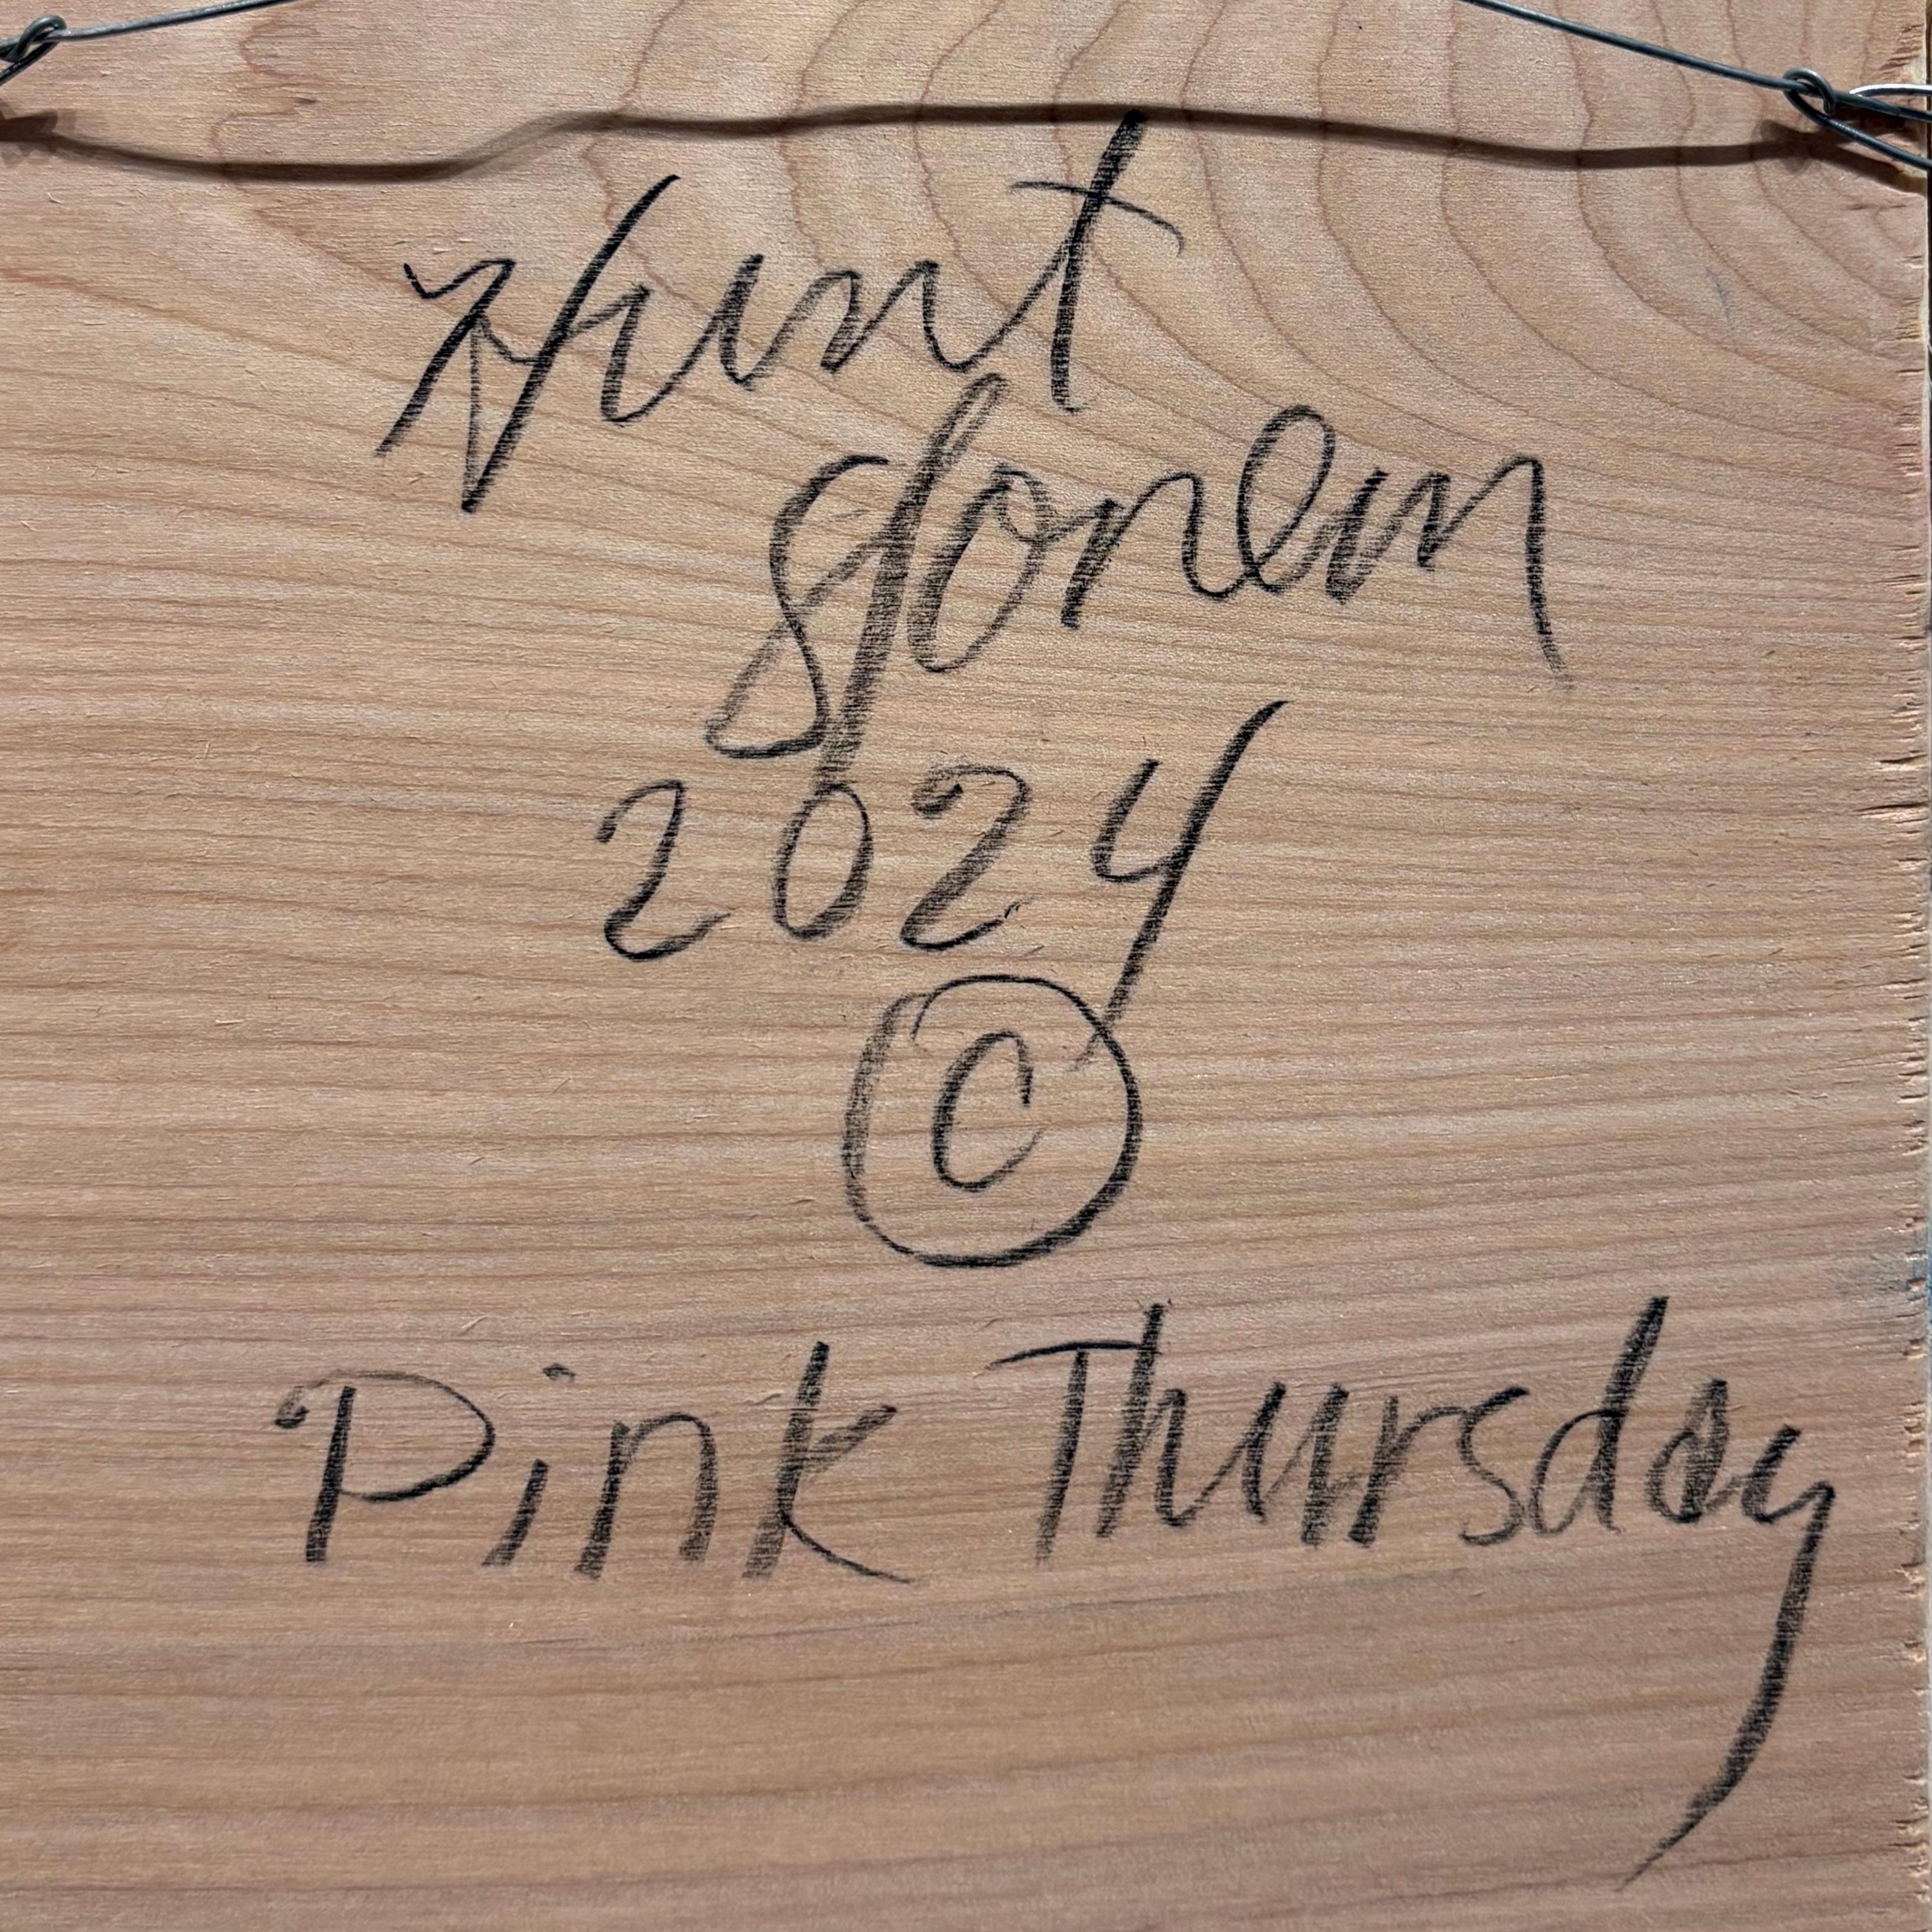 Hunt
Slonem
2024
©
Pink Thursday